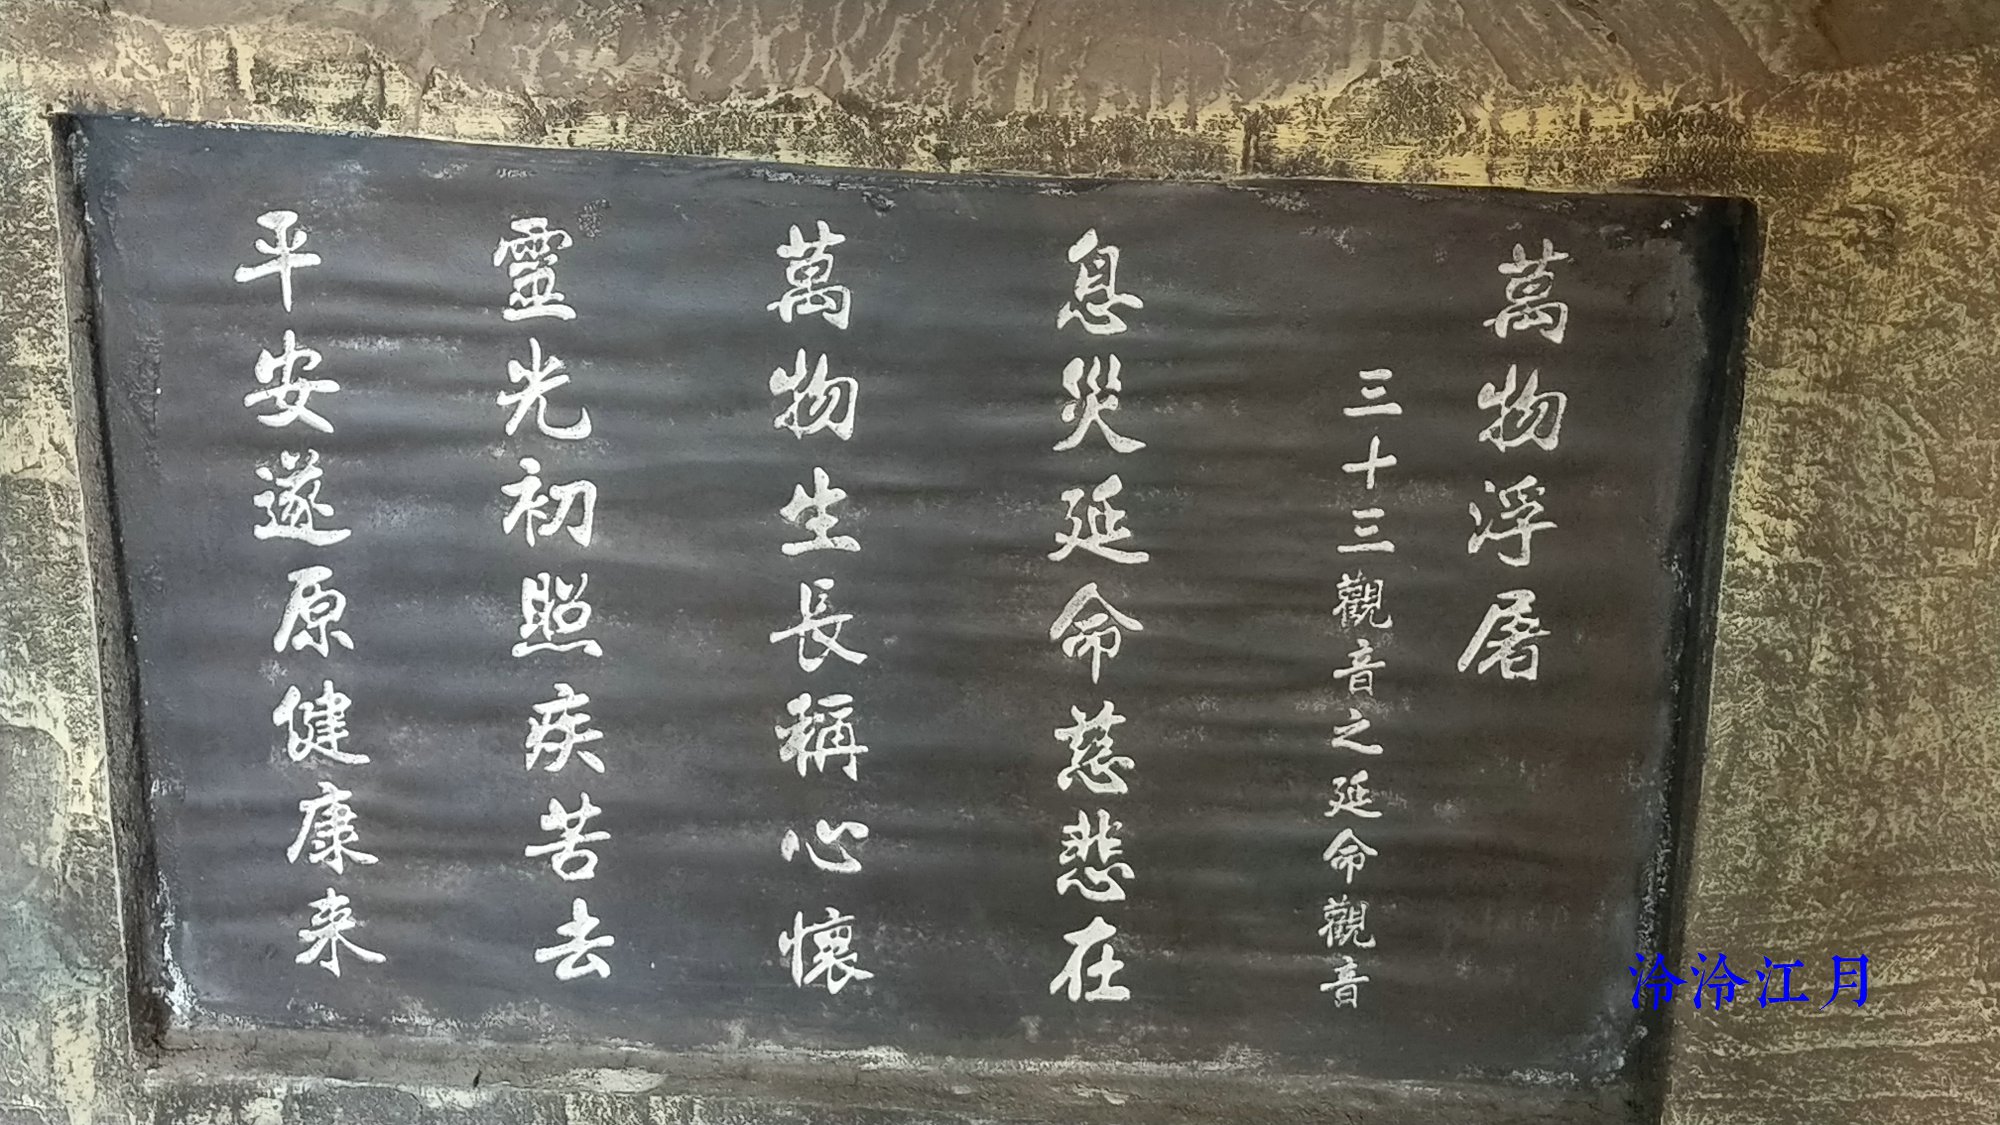 萬物浮屠
三十三觀音之延命觀音
息災延命慈悲在
萬物生長稱心懷
靈光初照疾苦去
平安遂原健康来
泠泠江月